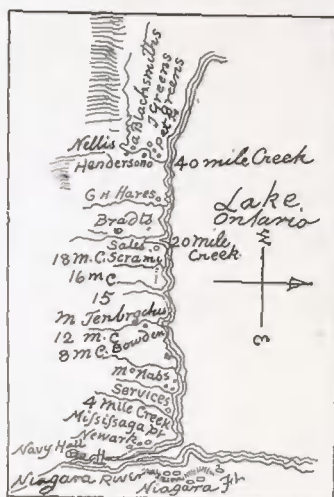 a Blacksmiths
J Greens
Pet Greens
Nellis
Henderson
40 mile Creek
G H Hares
Bradts
Lake
Ontario
Sales
20 Mile
Creek
18 M.C. Scram
16 m C
15
W
E
M Tenbrochus
12 M.C
8 M.C. Bowden
McNabs
Services
4 Mile Creek
Missisaga Pt
Newark
Navy Hall
Niagara River
Niagara Ft